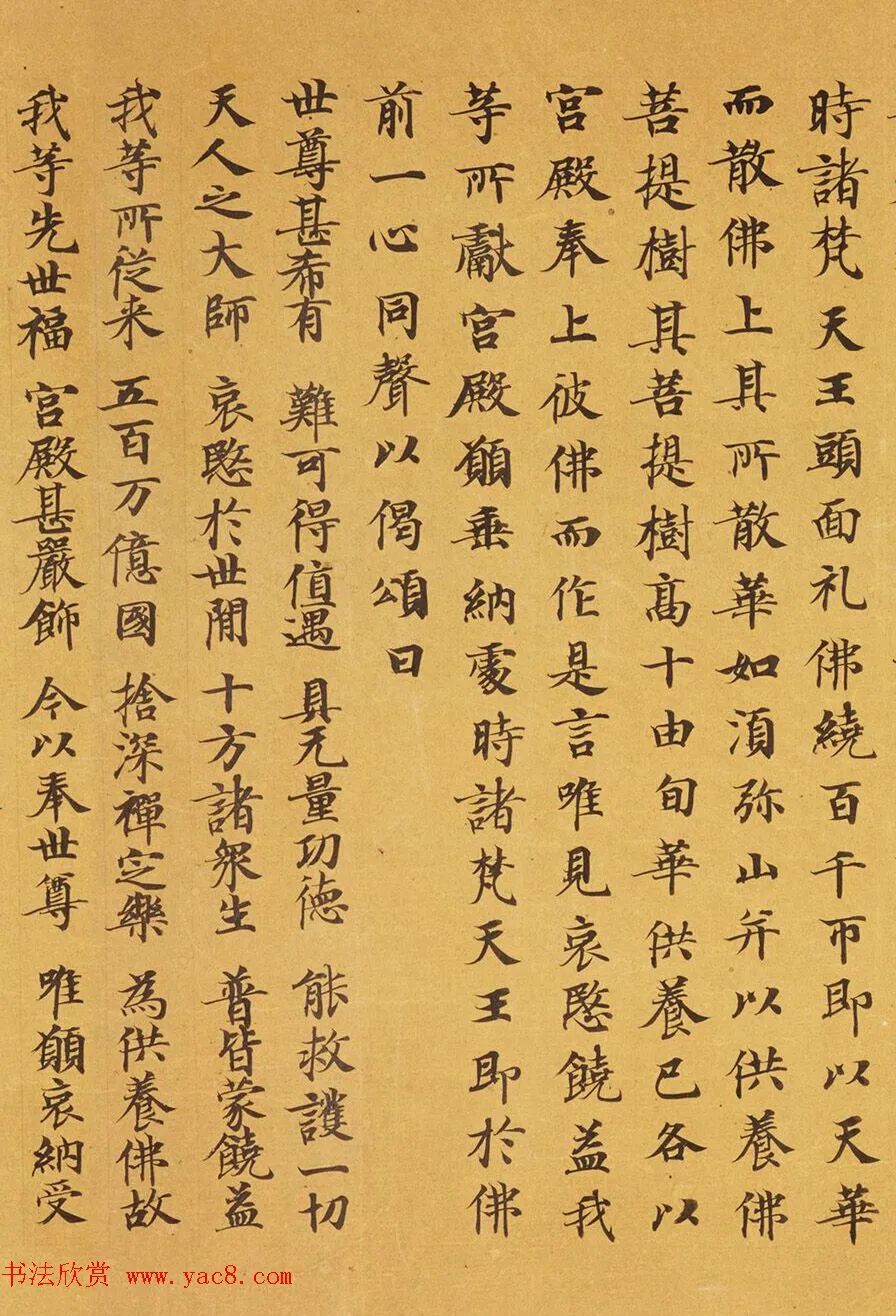 時諸梵天王頭面礼佛繞百千帀即以天華
而散佛上其所散華如湏弥山并以供養佛
菩提樹其菩提樹高十由旬華供養已各以
宮殿奉上彼佛而作是言唯見哀愍饒益我
等所獻宮殿願垂納處時諸梵天王即於佛
前一心同聲以偈頌曰
世尊甚希有 難可得值遇 具无量功德 能救護一切
天人之大師 哀愍於世間 十方諸衆生 普皆蒙饒益
我等所從来 五百万億國 捨深禪定樂 為供養佛故
我等先世福 宮殿甚嚴飾 今以奉世尊 唯願哀納受
书法欣赏 www.yac8.com